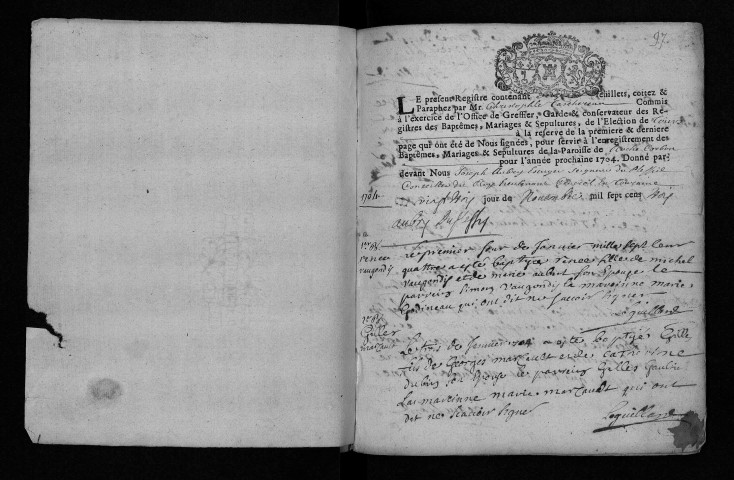 97.
LE present Registre contenant feuillets, cottez &
Paraphez par Mr. Christophle Commis
à l'exercice de l'Office de Greffier, Garde & conservateur des Re-
gistres des Baptêmes, Mariages & Sepultures, de l'Election de Tours
à la reserve de la premiere & derniere
page qui ont été de Nous signées, pour servir à l'enregistrement des
Baptêmes, Mariages & Sepultures de la Paroisse de Roche Corbon
pour l'année prochaine 1704. Donné par-
devant Nous Joseph Aubry Seigneur du Plessis
Conseiller du Roy Lieutenant
1704
le vingt trois jour de Novembre mil sept cens trois
Aubry
1er B.
renee
vaugondy
Le premier jour de Janvier mille sept cent
quattre a esté baptisée renee fille de michel
vaugondy et de marie aubert son Epouse le
parrein simon vaugondy la mareinne marie
Godineau qui ont dit ne scavoir signer
Lequillard
Gilles
marcault
Le trois de Janvier 704 a esté baptisé Gille
fils de Georges marcault et de catherine
dubois son Epouse le parrein Gilles
La mareinne marie marcault qui ont
dit ne scavoir signer
Lequillard